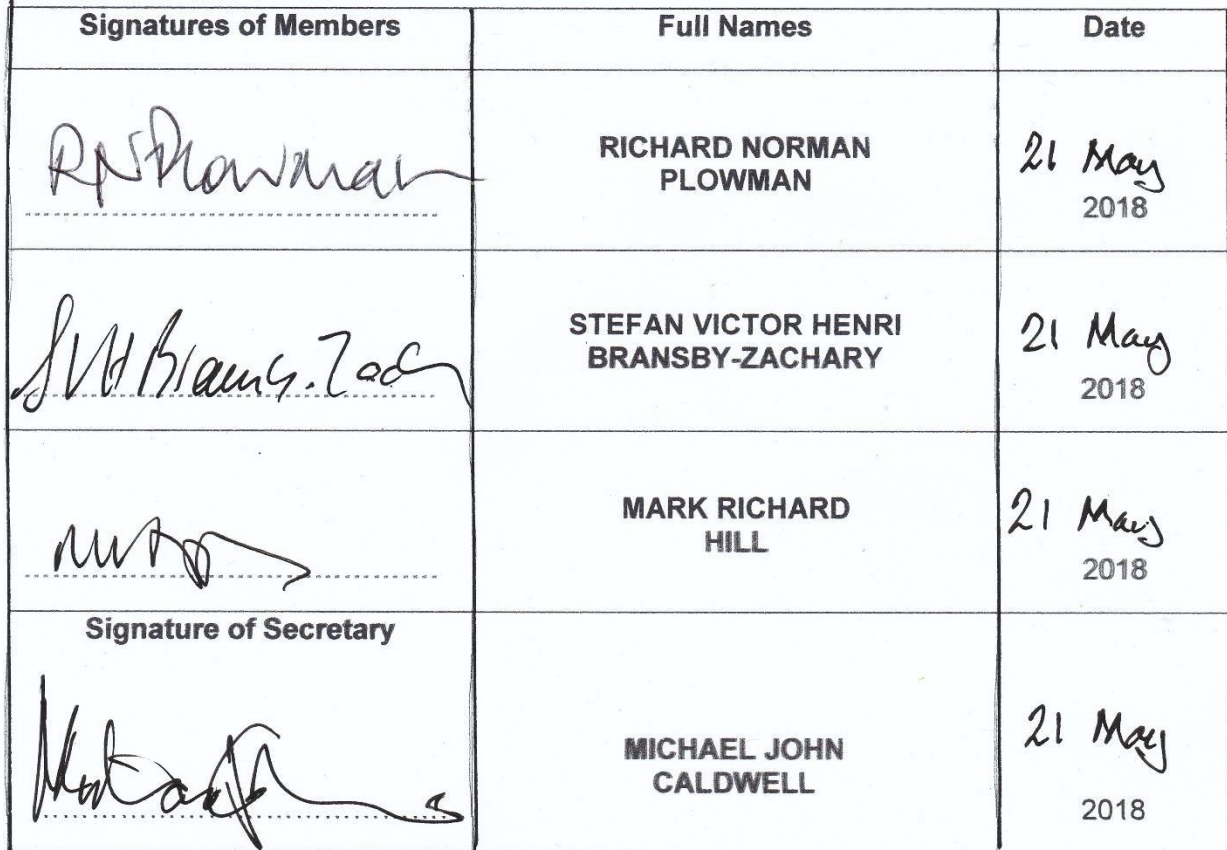 Signatures of Members Full Names Date
RNPlowman
RICHARD NORMAN
PLOWMAN
21 May
2018
SVH Bransby-Zachary
STEFAN VICTOR HENRI
BRANSBY-ZACHARY
21 May
2018
MARK RICHARD
HILL
21 May
2018
Signature of Secretary
MICHAEL JOHN
CALDWELL
21 May
2018